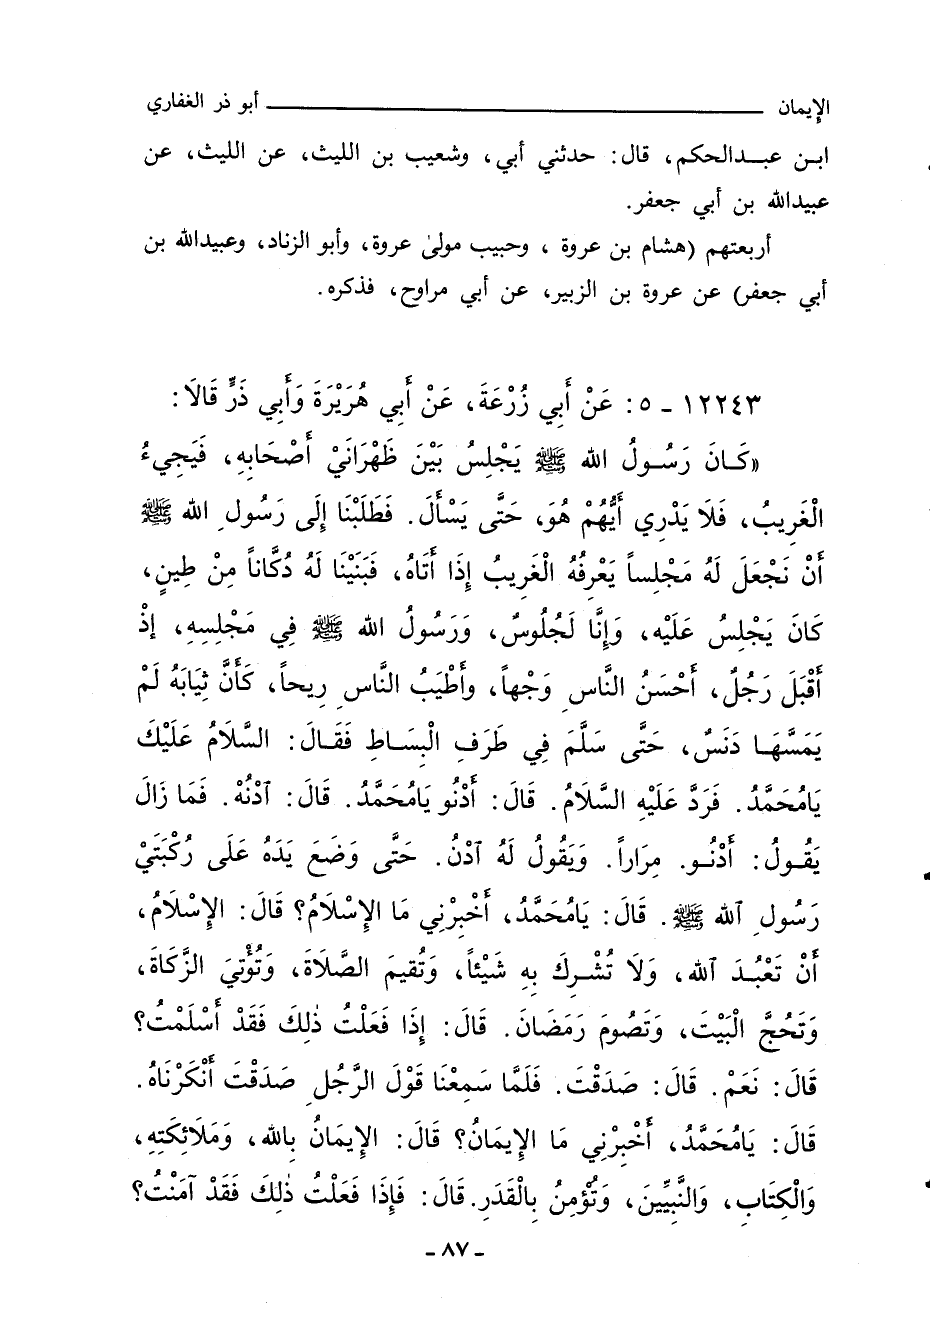 الإيمان ــــــــــــــــــــ أبو ذر الغفاري
ابن عبدالحكم، قال: حدثني أبي، وشعيب بن الليث، عن الليث، عن
عبيدالله بن أبي جعفر.
أربعتهم (هشام بن عروة ، وحبيب مولىٰ عروة، وأبو الزناد، وعبيدالله بن
أبي جعفر) عن عروة بن الزبير، عن أبي مراوح، فذكره.
١٢٢٤٣ ـ ٥: عَنْ أَبِي زُرْعَةَ، عَنْ أَبِي هُرَيْرَةَ وَأَبِي ذَرٍّ قَالَا:
«كَانَ رَسُولُ الله ﷺ يَجْلِسُ بَيْنَ ظَهْرَانَيْ أَصْحَابِهِ، فَيَجِيءُ
الْغَرِيبُ، فَلَا يَدْرِي أَيُّهُمْ هُوَ، حَتَّى يَسْأَلَ. فَطَلَبْنَا إِلَى رَسُولِ الله ﷺ
أَنْ نَجْعَلَ لَهُ مَجْلِساً يَعْرِفُهُ الْغَرِيبُ إِذَا أَتَاهُ، فَبَنَيْنَا لَهُ دُكَّاناً مِنْ طِينٍ،
كَانَ يَجْلِسُ عَلَيْهِ، وَإِنَّا لَجُلُوسٌ، وَرَسُولُ الله ﷺ فِي مَجْلِسِهِ، إِذْ
أَقْبَلَ رَجُلٌ، أَحْسَنُ النَّاسِ وَجْهاً، وأَطْيَبُ النَّاسِ رِيحاً، كَأَنَّ ثِيَابَهُ لَمْ
يَمَسَّهَا دَنَسٌ، حَتَّى سَلَّمَ فِي طَرَفِ الْبِسَاطِ فَقَالَ: السَّلَامُ عَلَيْكَ
يَامُحَمَّدُ. فَرَدَّ عَلَيْهِ السَّلَامُ. قَالَ: أَدْنُو يَامُحَمَّدُ. قَالَ: ٱدْنُهْ. فَمَا زَالَ
يَقُولُ: أَدْنُو. مِرَاراً. وَيَقُولُ لَهُ ٱدْنُ. حَتَّى وَضَعَ يَدَهُ عَلَى رُكْبَتَيْ
رَسُولِ ٱلله ﷺ. قَالَ: يَامُحَمَّدُ، أَخْبِرْنِي مَا الإِسْلَامُ؟ قَالَ: الإِسْلَامُ،
أَنْ تَعْبُدَ ٱلله، وَلَا تُشْرِكَ بِهِ شَيْئاً، وَتُقِيمَ الصَّلَاةَ، وَتُؤْتِيَ الزَّكَاةَ،
وَتَحُجَّ الْبَيْتَ، وَتَصُومَ رَمَضَانَ. قَالَ: إِذَا فَعَلْتُ ذٰلِكَ فَقَدْ أَسْلَمْتُ؟
قَالَ: نَعَمْ. قَالَ: صَدَقْتَ. فَلَمَّا سَمِعْنَا قَوْلَ الرَّجُلِ صَدَقْتَ أَنْكَرْنَاهُ.
قَالَ: يَامُحَمَّدُ، أَخْبِرْنِي مَا الإِيمَانُ؟ قَالَ: الإِيمَانُ بِالله، وَمَلَائِكَتِهِ،
وَالْكِتَابِ، وَالنَّبِيِّينَ، وَتُؤْمِنُ بِالْقَدَرِ. قَالَ: فَإِذَا فَعَلْتُ ذٰلِكَ فَقَدْ آمَنْتُ؟
ـ ٨٧ ـ